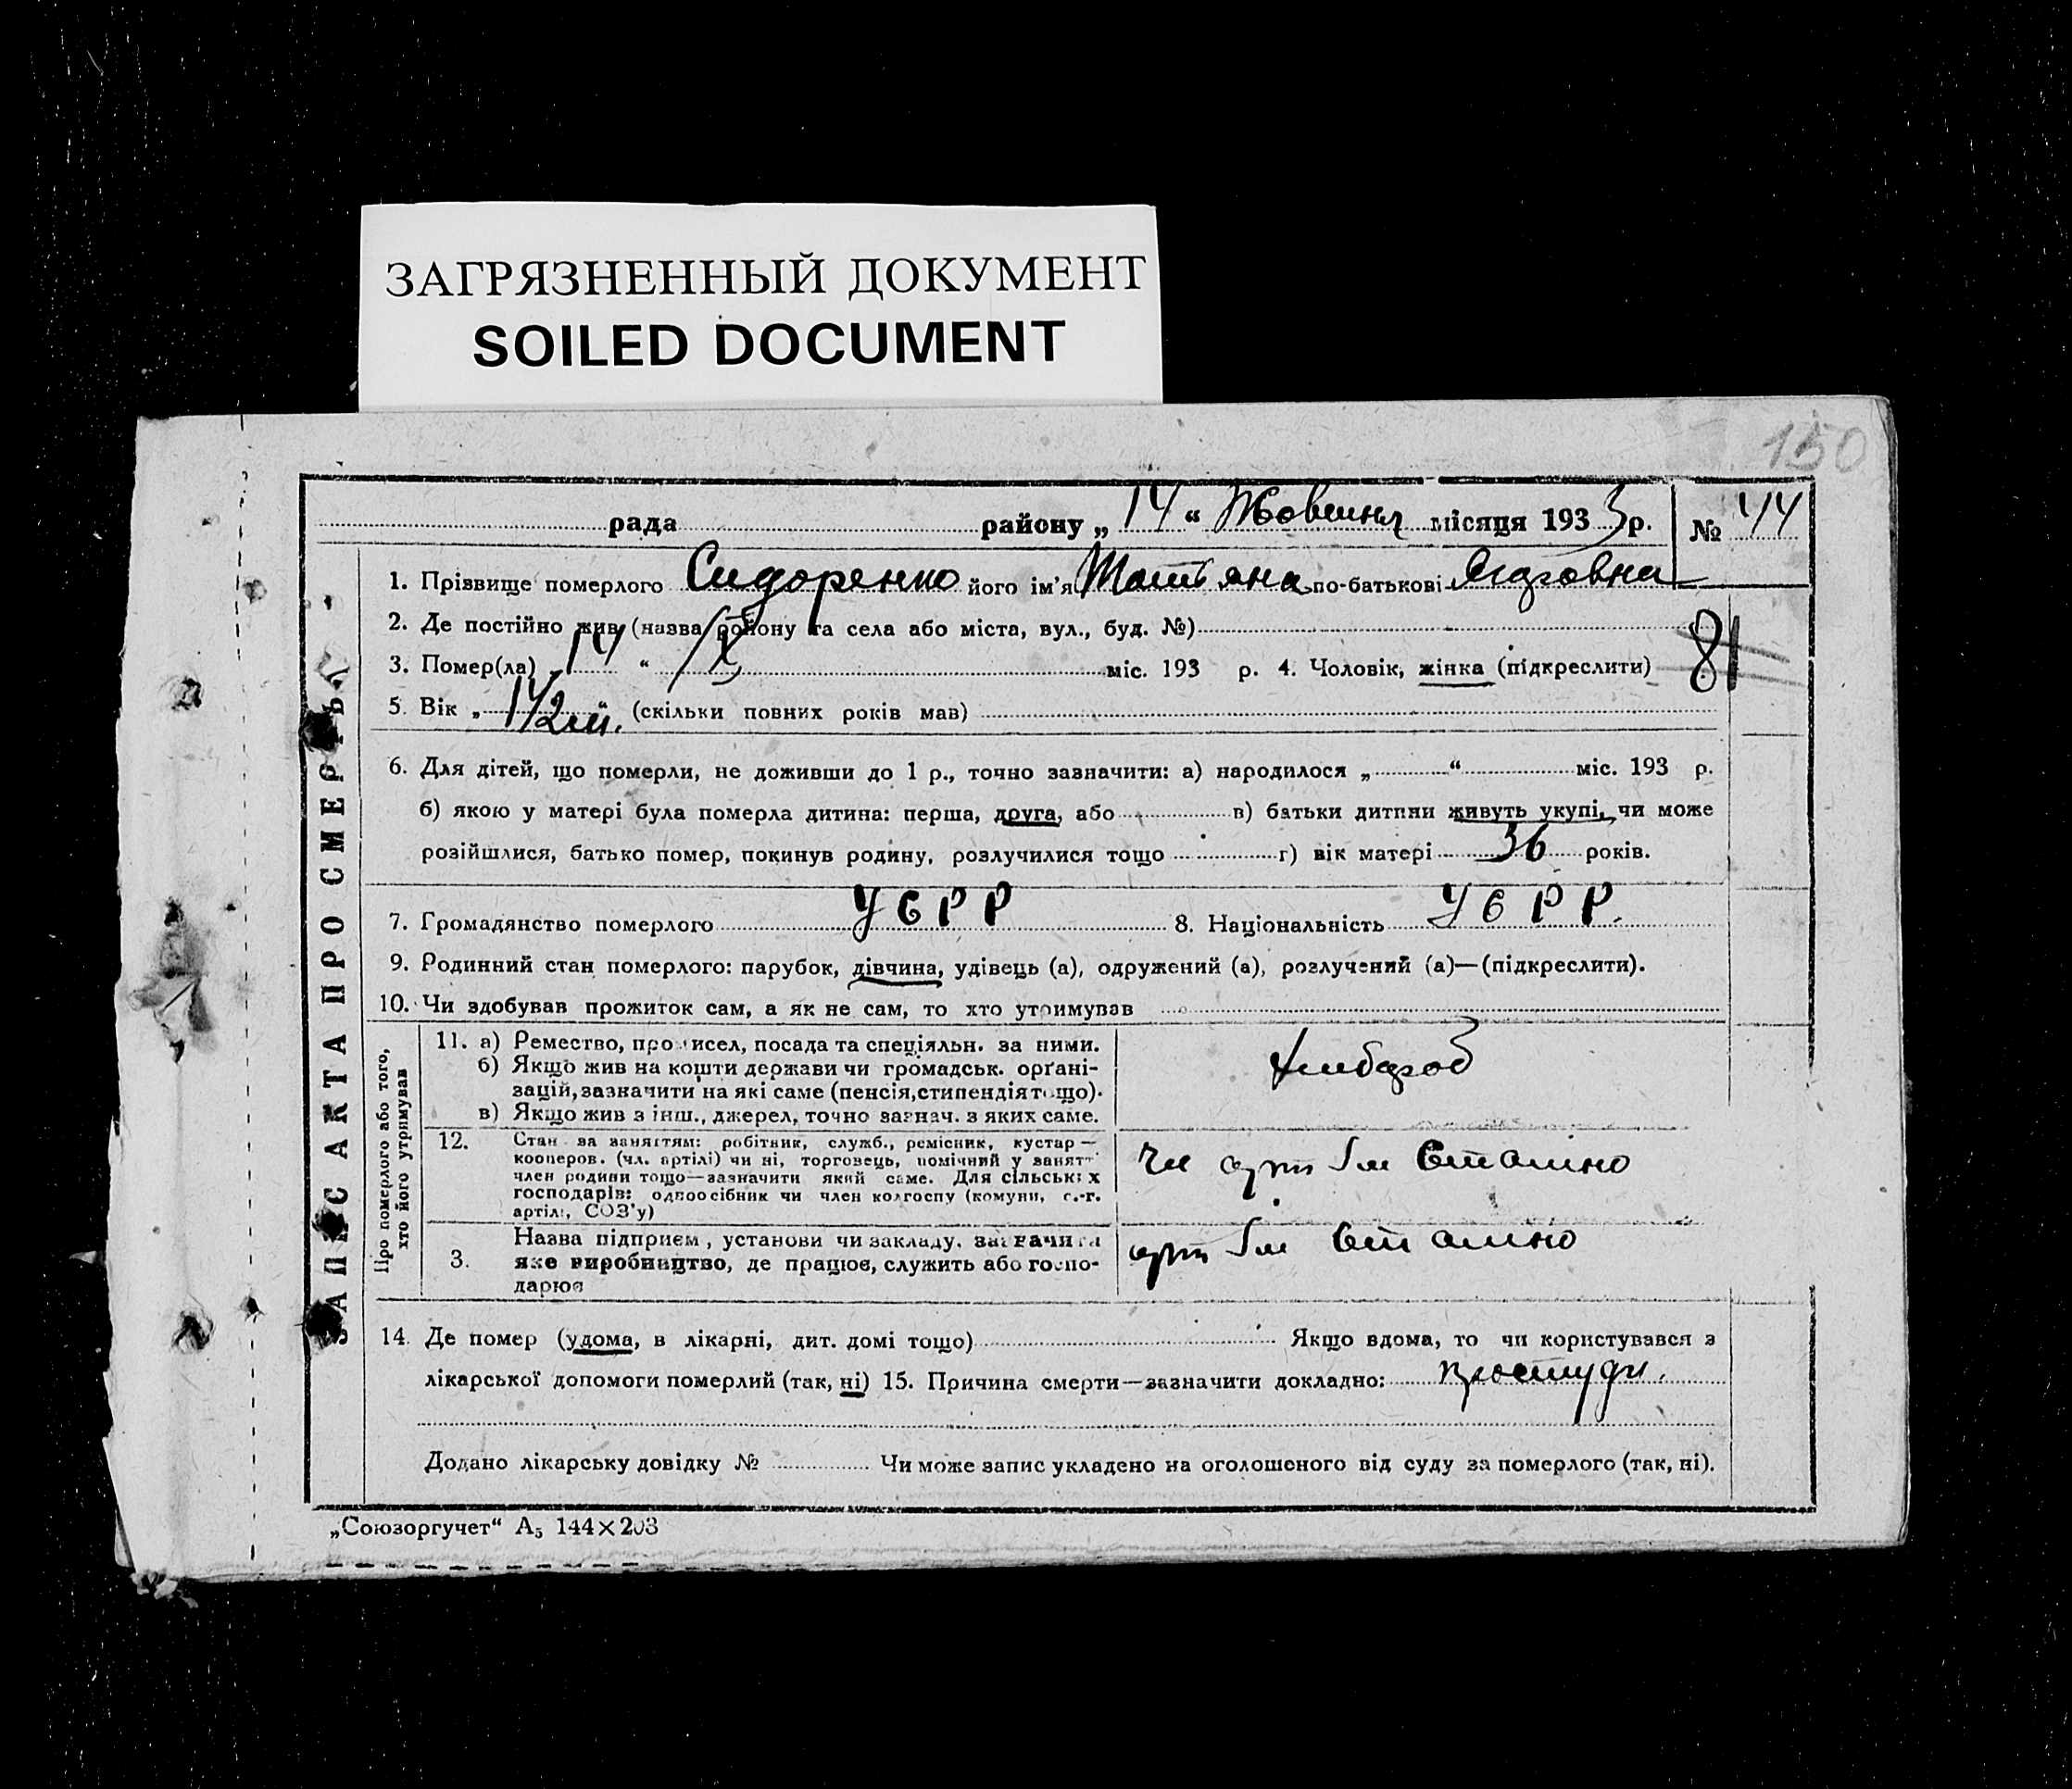 ЗАГРЯЗНЕННЫЙ ДОКУМЕНТ
SOILED DOCUMENT
150
рада району „ 14 “ Жовтня місяця 193 3 р. № 44
ЗАПИС АКТА ПРО СМЕРТЬ
1. Прізвище померлого Сидоренко його ім'я Татьяна по-батькові
2. Де постійно жив (назва району та села або міста, вул., буд. №)
81
3. Помер(ла) „ 14 “ IX міс. 193 р. 4. Чоловік, жінка (підкреслити)
5. Вік „ 1 1/2 “ (скільки повних років мав)
6. Для дітей, що померли, не доживши до 1 р., точно зазначити: а) народилося „ “ міс. 193 р.
б) якою у матері була померла дитина: перша, друга, або в) батьки дитини живуть укупі, чи може
розійшлися, батько помер, покинув родину, розлучилися тощо г) вік матері 36 років.
7. Громадянство померлого УСРР 8. Національність УСРР.
9. Родинний стан померлого: парубок, дівчина, удівець (а), одружений (а), розлучений (а)—(підкреслити).
10. Чи здобував прожиток сам, а як не сам, то хто утримував
Про померлого або того,
хто його утримував
11. а) Ремество, промисел, посада та спеціяльн. за ними.
б) Якщо жив на кошти держави чи громадськ. орґані-
зацій, зазначити на які саме (пенсія, стипендія тощо).
в) Якщо жив з інш., джерел, точно зазнач. з яких саме.
хлібороб
12. Стан за заняттям: робітник, служб., ремісник, кустар —
кооперов. (чл. артілі) чи ні, торговець, помічний у занятт
член родини тощо—зазначити який саме. Для сільських
господарів: одноосібник чи член колгоспу (комуни, с.-г.
артілі, СОЗ'у)
чл арт Ім Сталіно
Назва підприєм., установи чи закладу, зазначити
3. яке виробництво, де працює, служить або госпо-
дарює
арт Ім Сталіно
14. Де помер (удома, в лікарні, дит. домі тощо) Якщо вдома, то чи користувався з
лікарської допомоги померлий (так, ні) 15. Причина смерти—зазначити докладно: простуди.
Додано лікарську довідку № Чи може запис укладено на оголошеного від суду за померлого (так, ні).
„Союзоргучет“ А5 144×203